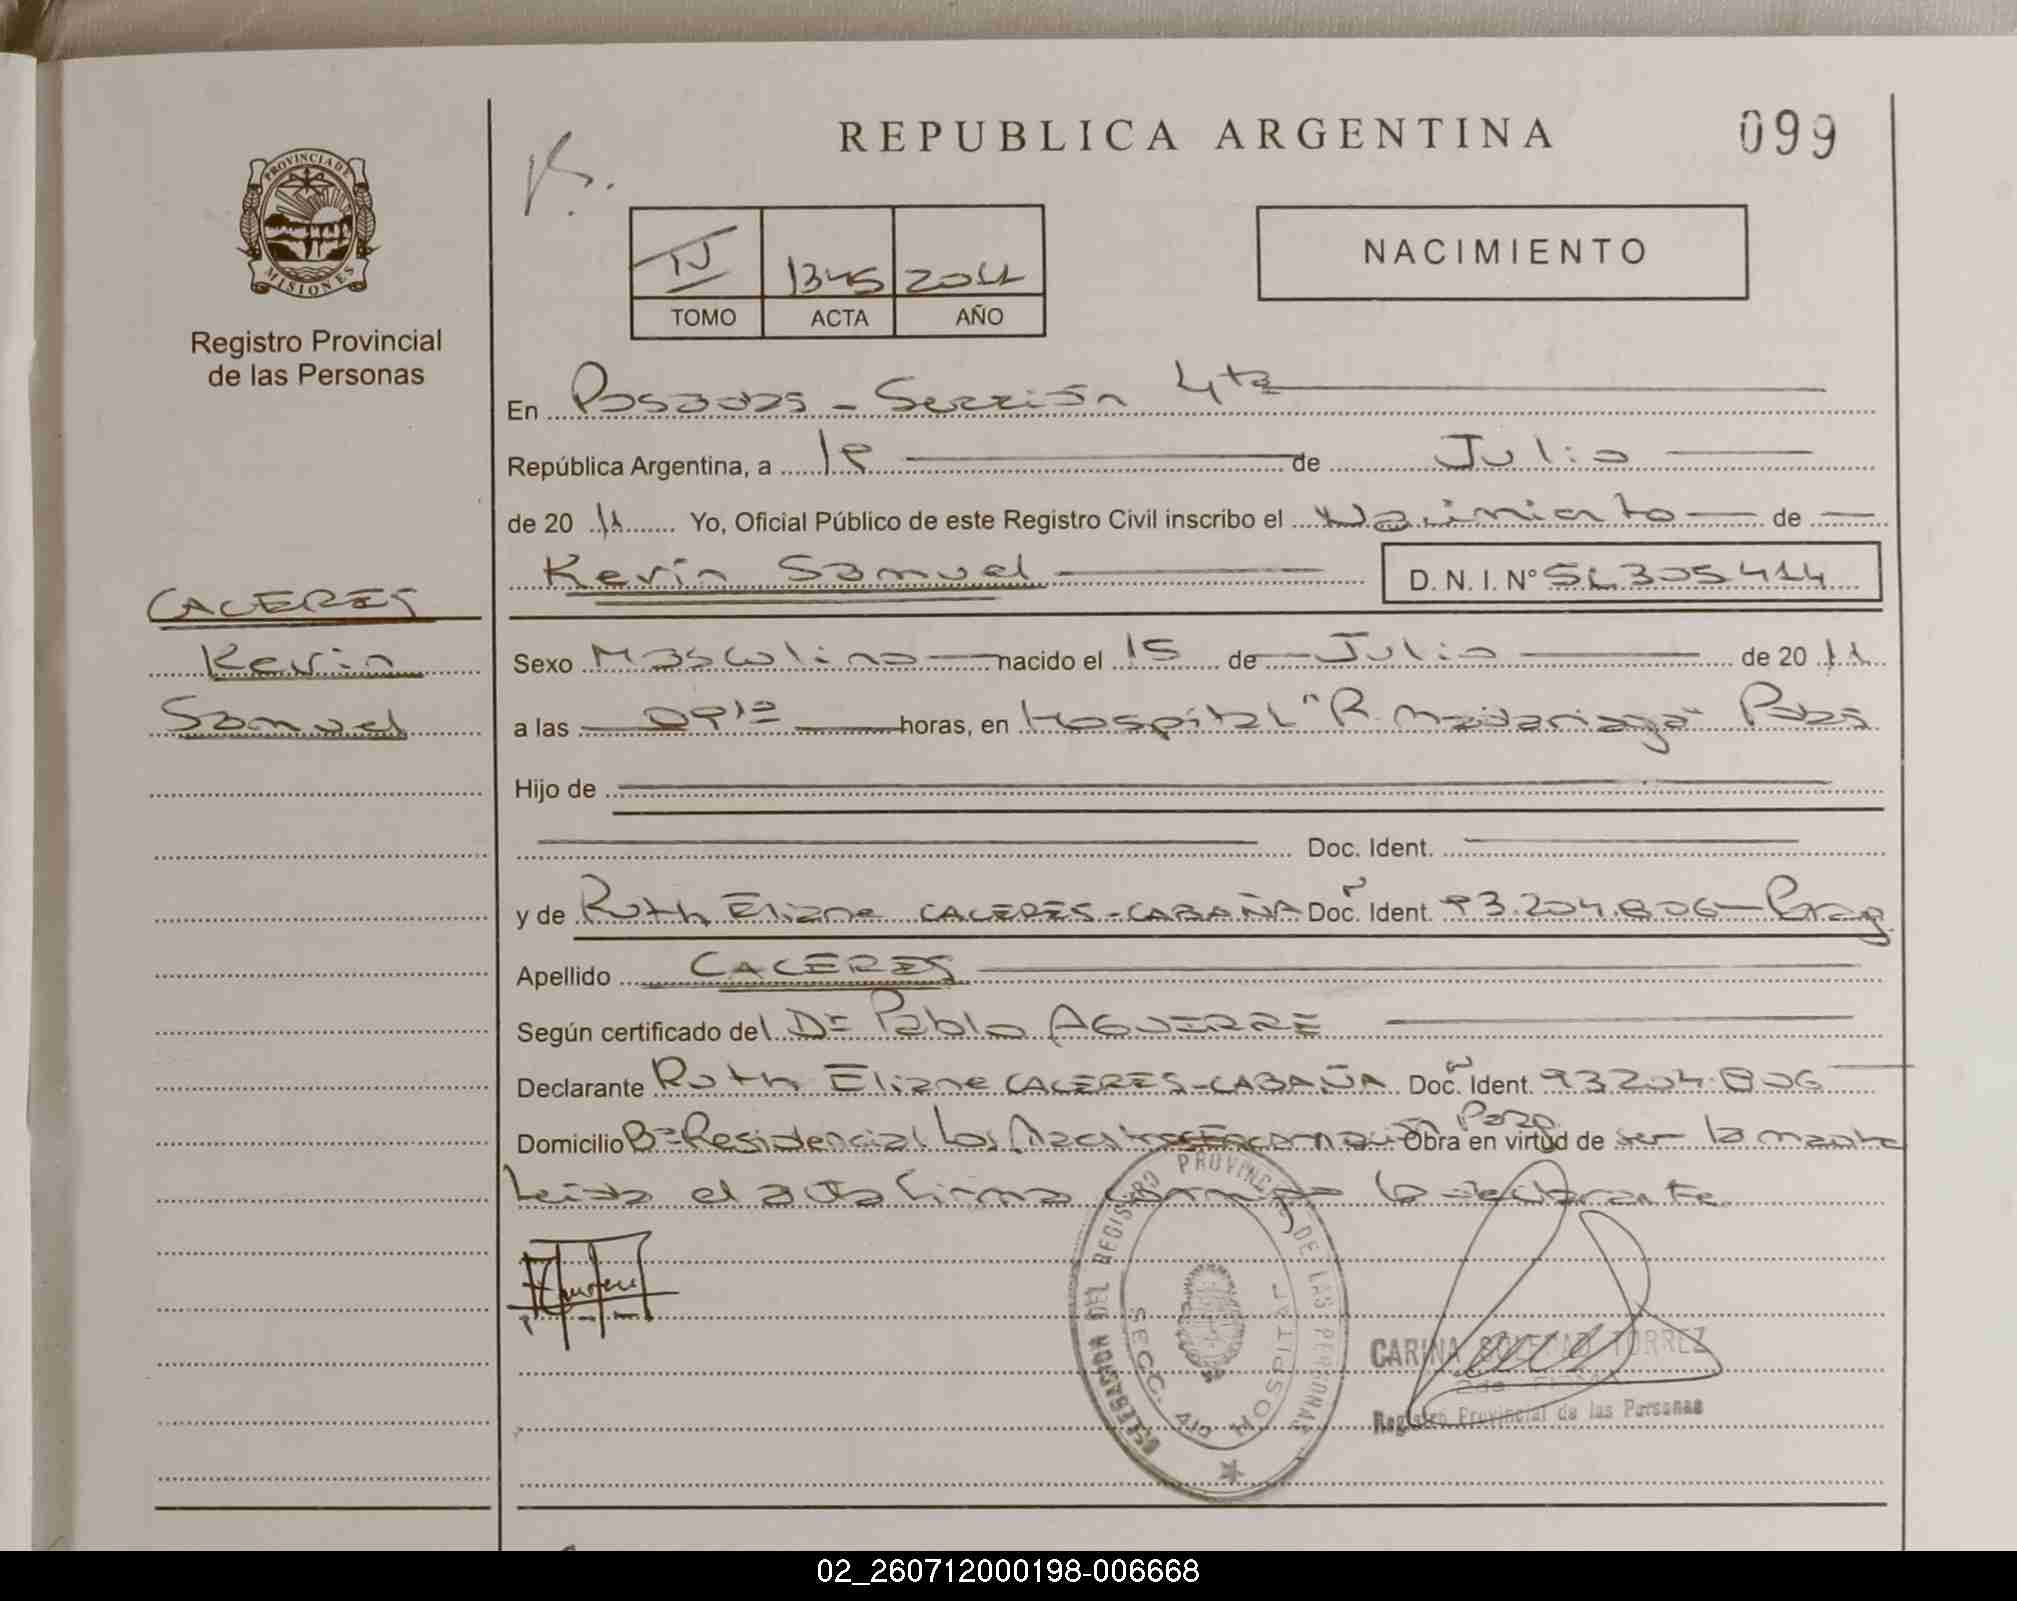 REPUBLICA ARGENTINA
099
PROVINCIA DE MISIONES
Registro Provincial
de las Personas
IV 1345 2011
TOMO ACTA AÑO
NACIMIENTO
En Posadas - Sección 4ta
República Argentina, a de Julio
de 20 11 Yo, Oficial Público de este Registro Civil inscribo el Nacimiento de
Kevin Samuel D. N. I. Nº 51.305.414
CACERES
Kevin
Samuel
Sexo Masculino nacido el 15 de Julio de 20 11
a las horas, en Hospital "R. Madariaga" Pdas
Hijo de
Doc. Ident.
y de Ruth Eliane CACERES - CABAÑA Doc. Ident. 93.204.806 - Parag
Apellido CACERES
Según certificado del Dr Pablo AGUIRRE
Declarante Ruth Eliane CACERES - CABAÑA Doc. Ident. 93.204.806
Domicilio Bº Residencial Los Maestros Encarnación Obra en virtud de ser la madre
Leida el acta firma conmigo la declarante.
DELEGACION DEL REGISTRO PROVINCIAL DE LAS PERSONAS
SECC. 4ta HOSPITAL
CARINA SOLEDAD TORREZ
2da. FIRMA
Registro Provincial de las Personas
02_260712000198-006668